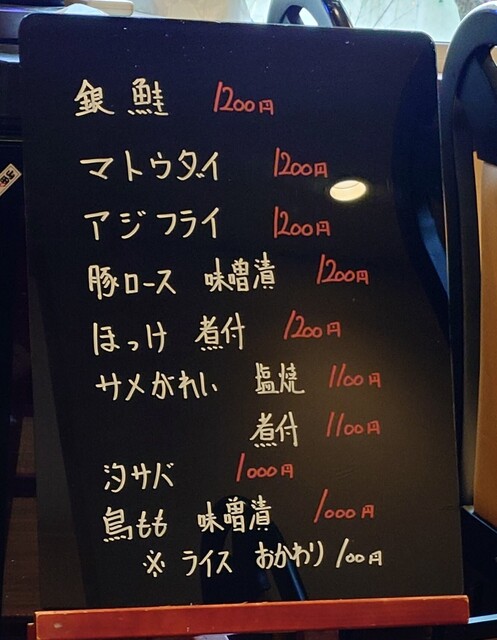 銀鮭 1200円
マトウダイ 1200円
アジフライ 1200円
豚ロース 味噌漬 1200円
ほっけ 煮付 1200円
サメがれい 塩焼 1100円
煮付 1100円
汐サバ 1000円
鳥もも 味噌漬 1000円
※ ライス おかわり 100円